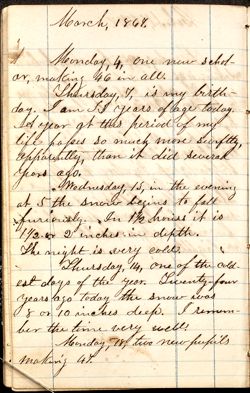 March, 1867.
Monday, 4, one new schol-
ar, making 46 in all.
Thursday, 7, is my birth-
day. I am years of age today.
year at this period of my
life passes so much more swiftly,
apparently, than it did several
years ago.
Wednesday, 13, in the evening
at 5 the snow begins to fall
furiously. In 1½ hours it is
1½ or 2 inches in depth.
The night is very cold.
Thursday, 14, one of the cold-
est days of the year. Twenty-four
years ago today the snow was
8 or 10 inches deep. I remem-
ber the time very well.
Monday, 18, two new pupils
making 47.